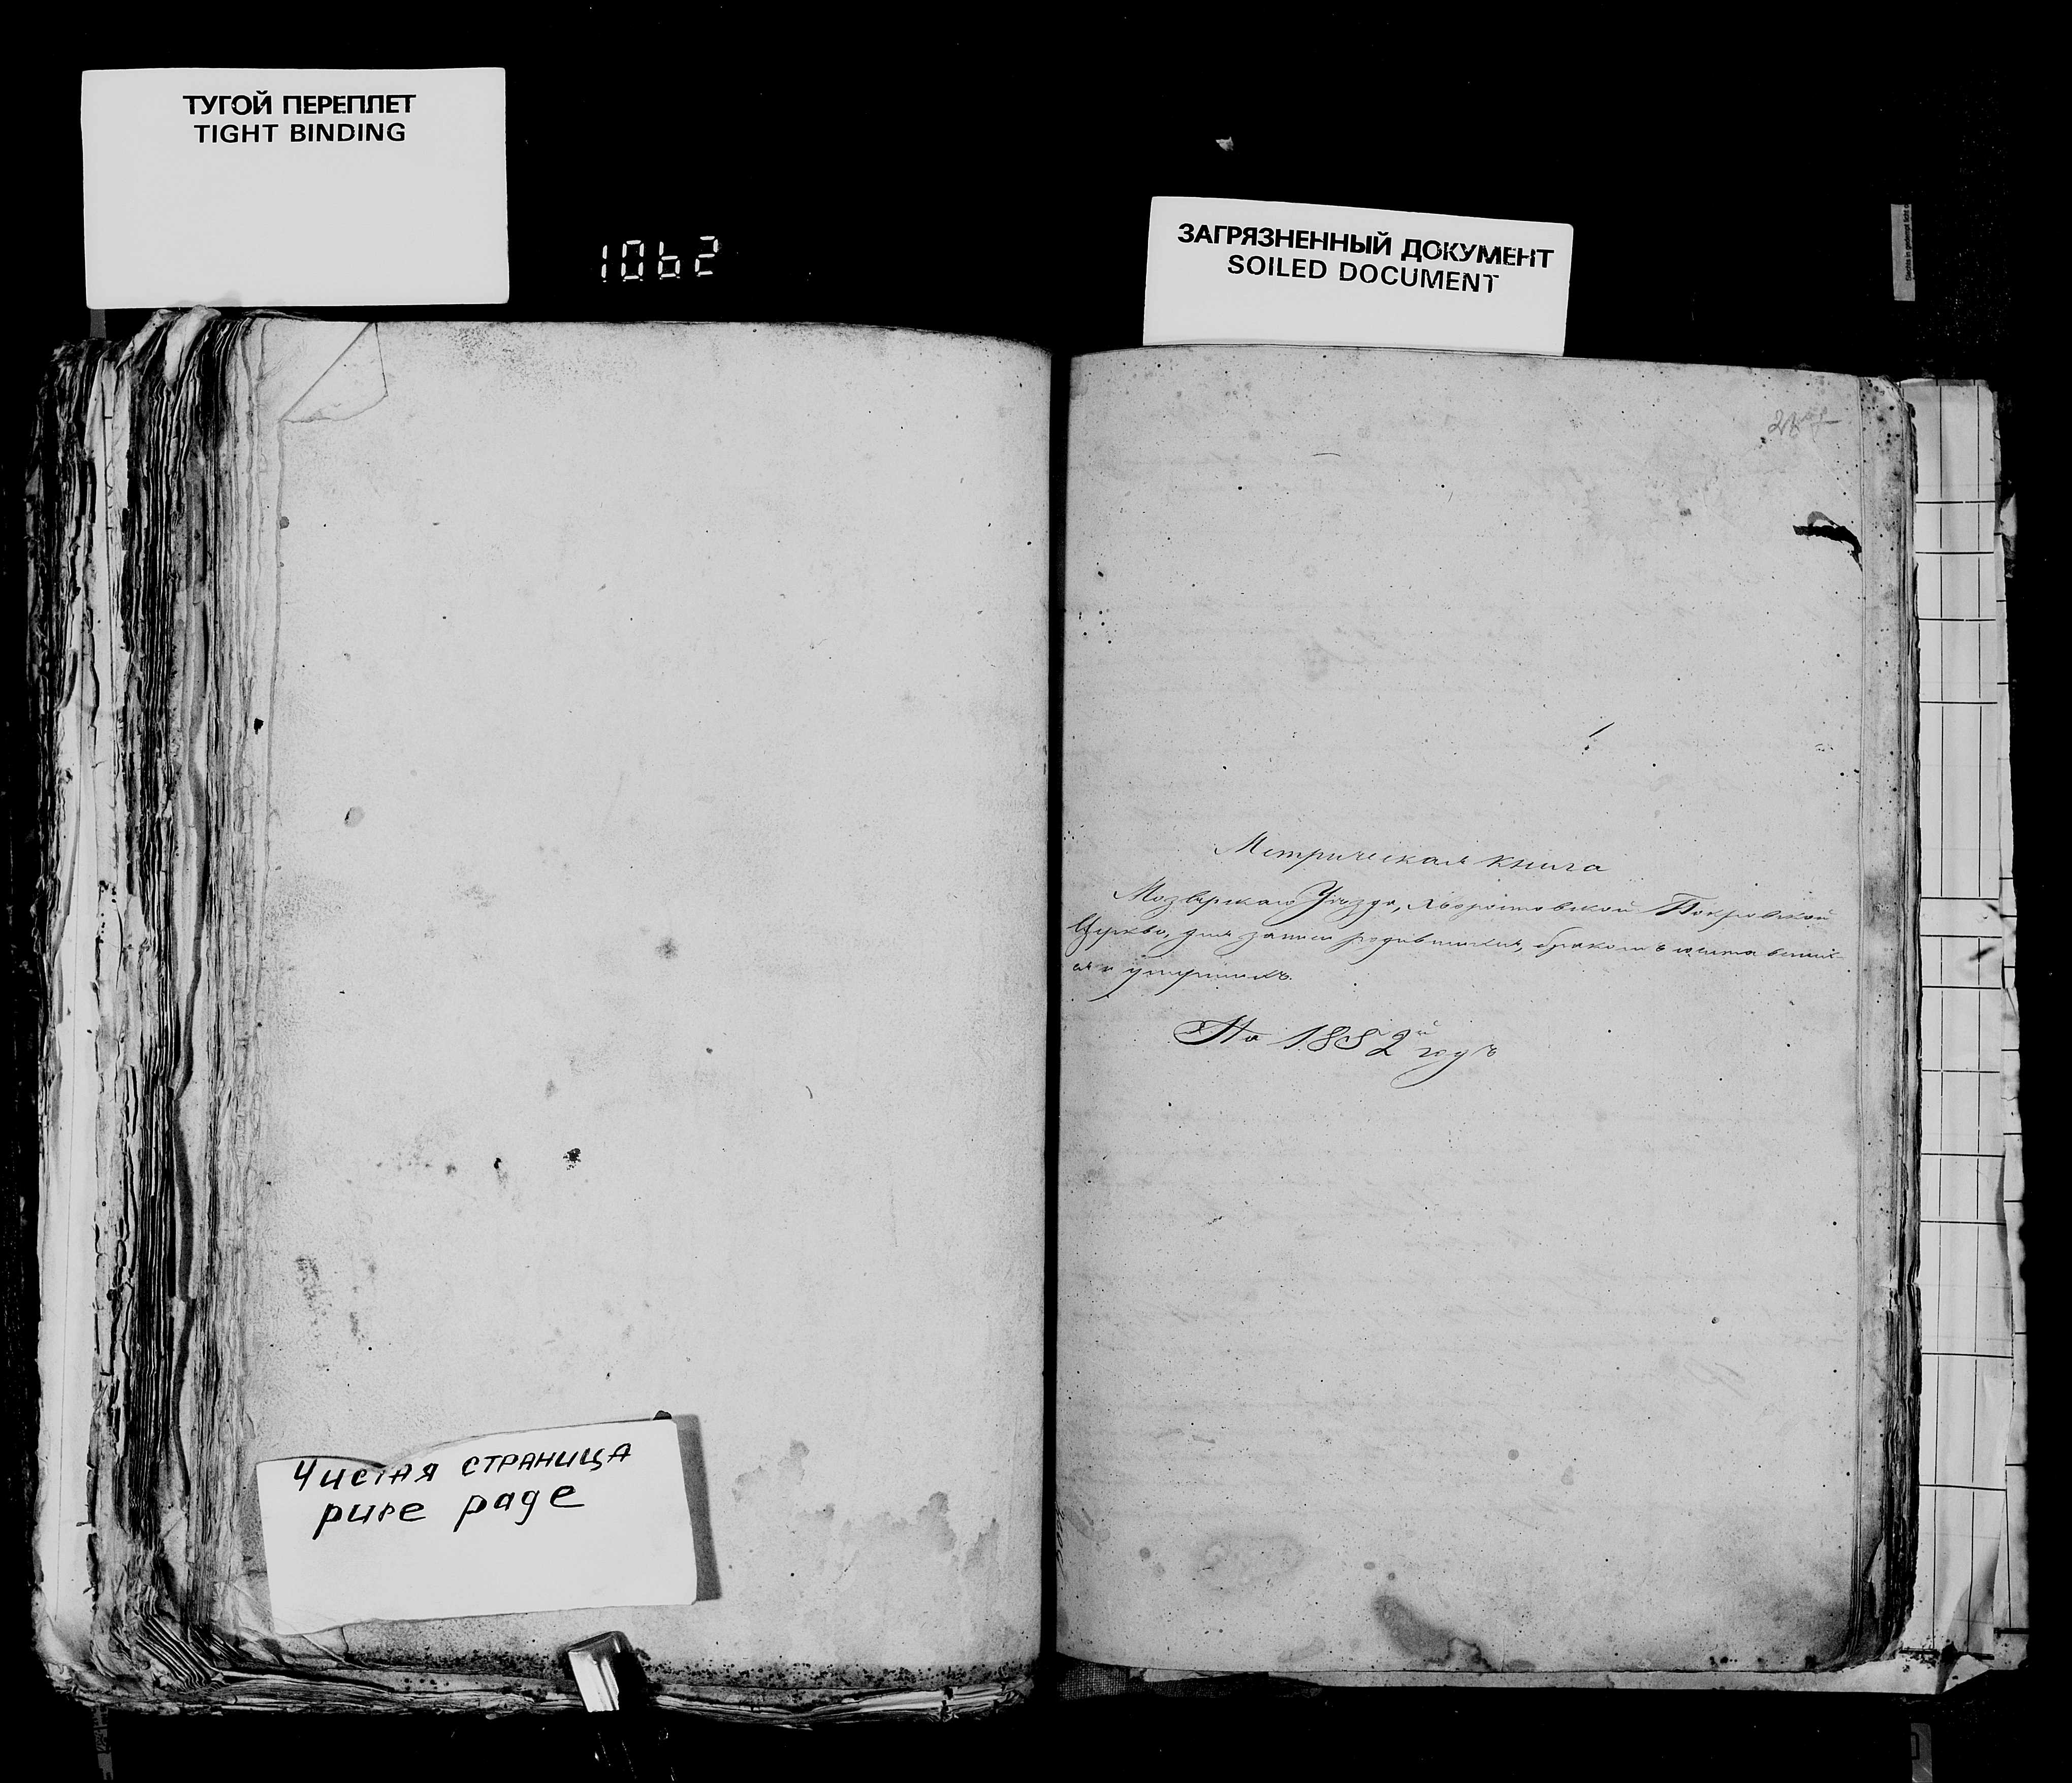 ТУГОЙ ПЕРЕПЛЕТ
TIGHT BINDING
1062
ЗАГРЯЗНЕННЫЙ ДОКУМЕНТ
SOILED DOCUMENT
Метрическая книга
Мозырскаго Уѣзда, Покровской
Церкви, для записи родившихся, бракомъ сочетавших-
ся и умершихъ.
На 1852й годъ
Чистая страница
pure page